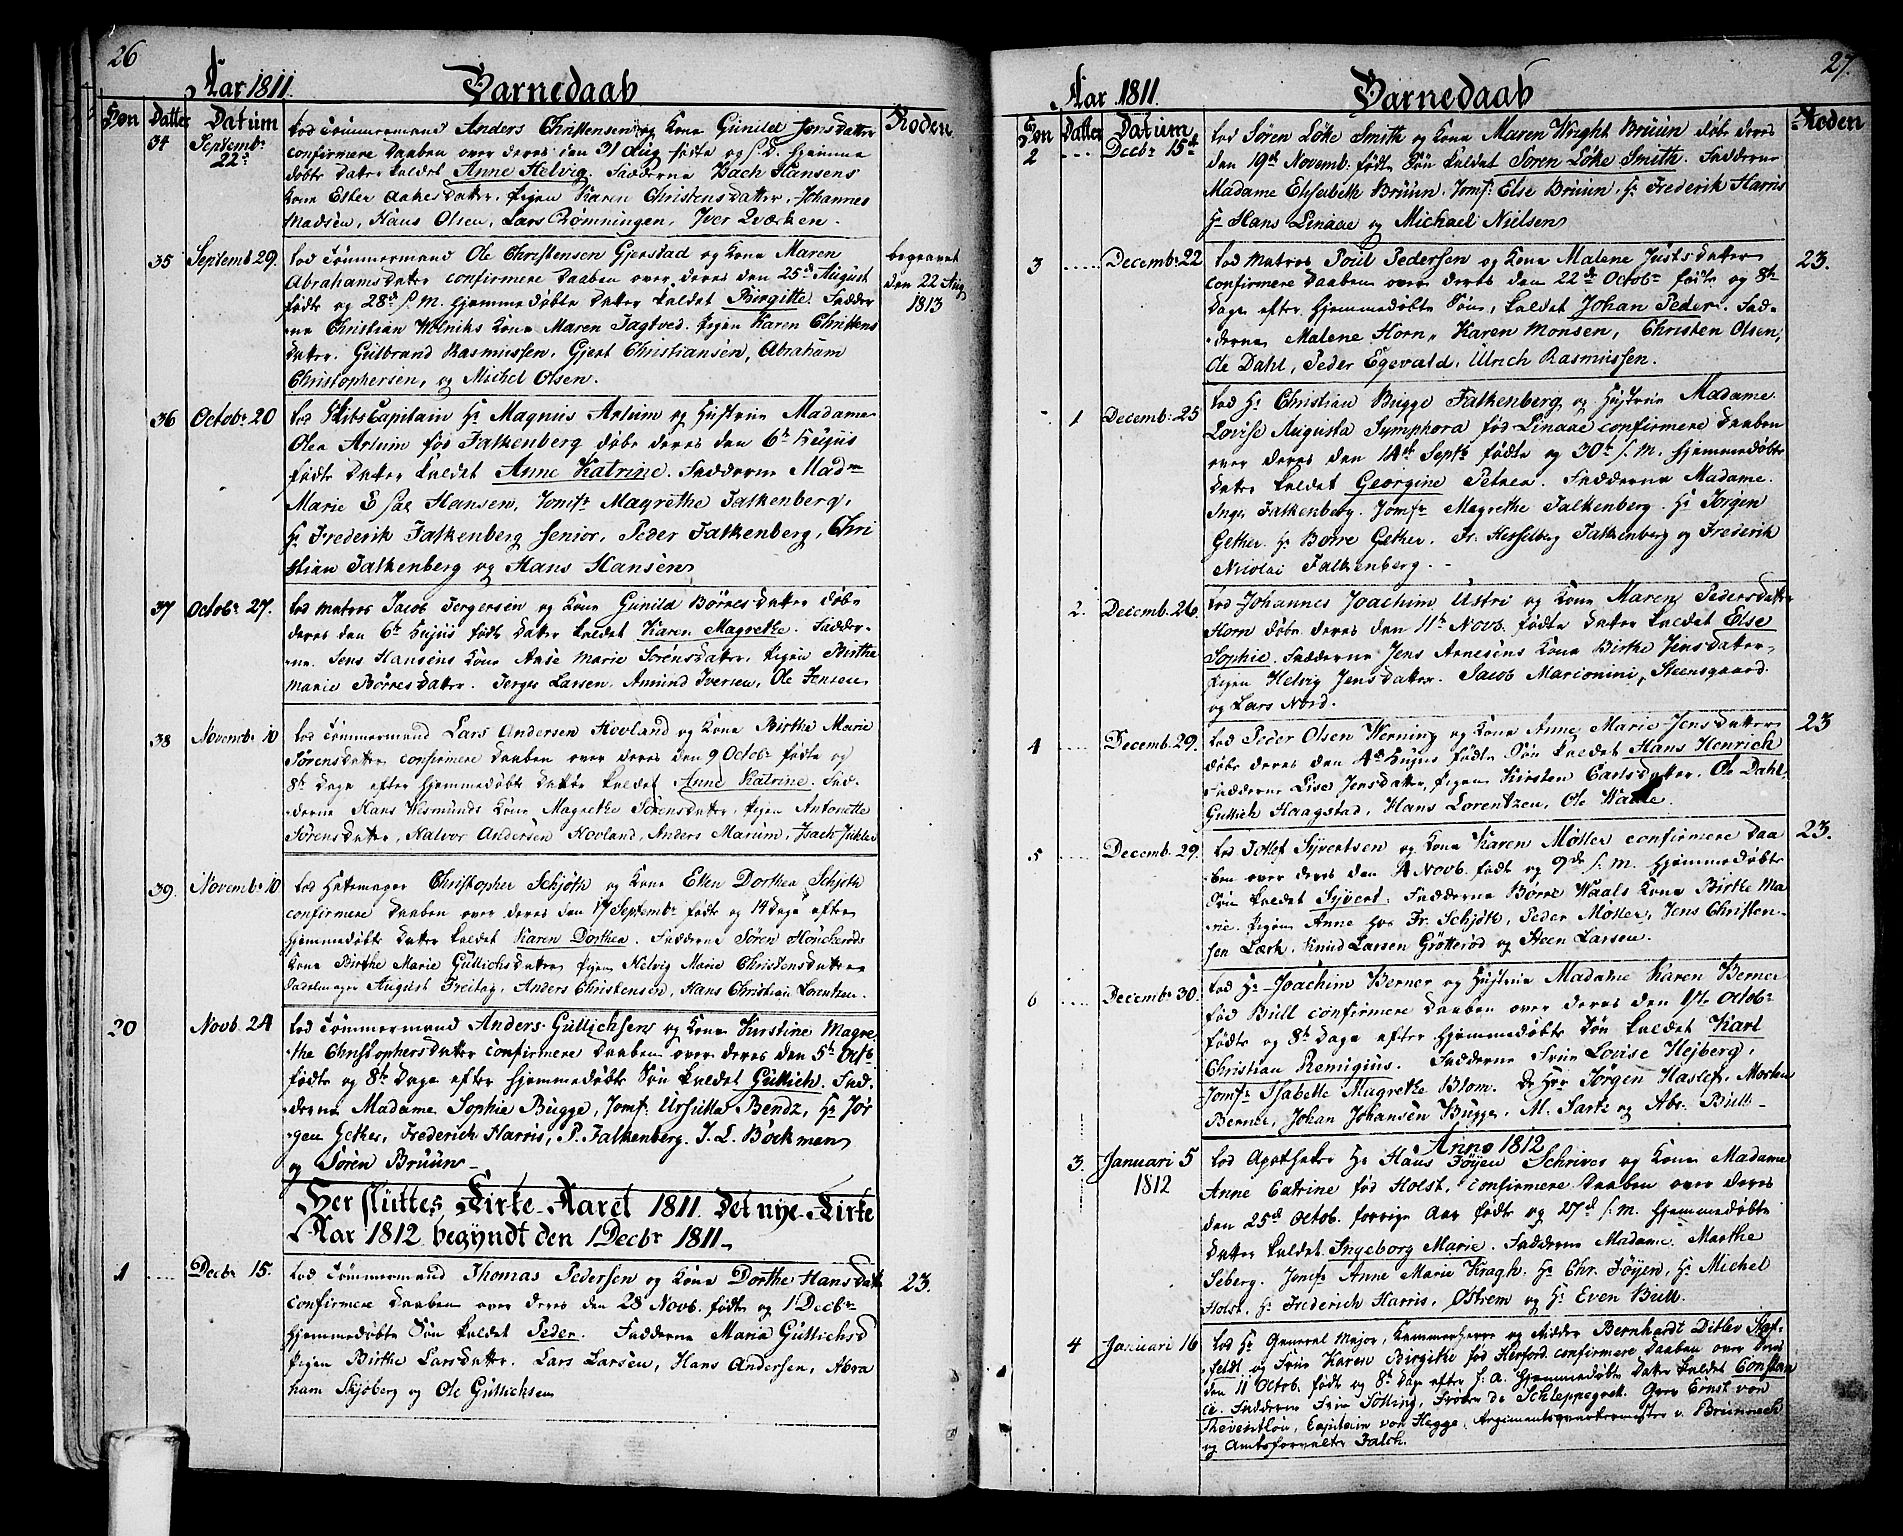 26
Aar 1811. Barnedaab
Søn Datter Datum Roden
34 Septembr 22d
lod Tømmermand Anders Christensen og Kone Gunild Jensdatter
confirmere Daaben over deres den 31 Aug fødte og s.D. hjemme
døbte Datter kaldet Anne Helvig. Fadderne Bach Hansens
Kone Ester Aakesdatter, Pigen Karen Christensdatter, Johannes
Madsen, Hans Olsen, Lars Rømningen, Iver Qværken.
35 Septemb 29.
lod Tømmermand Ole Christensen Gjerstad og Kone Maren
Abrahamsdatter confirmere Daaben over deres den 25d August
fødte og 28d s.M. hjemmedøbte Datter kaldet Birgitte. Fadder
ne Christian Wolniks Kone Maren Jagtved. Pigen Karen Christens
datter. Gulbrand Rasmussen, Gjert Christiansen, Abraham
Christophersen, og Michel Olsen.
begravet
den 22 Aug
1813
36 Octobr 20
lod Skibs Capitain Hr Magnus Arlum og Hustrue Madame
Olea Arlum fød Falkenberg døbe deres den 6te Hujus
fødte Datter kaldet Anne Katrine. Fadderne Madm
Marie Hansen, Jomfr Magrethe Falkenberg,
Hr Frederik Falkenberg Senior, Peder Falkenberg, Chri
stian Falkenberg og Hans Hansen
37 Octobr 27.
lod Matros Jacob Jergersen og Kone Gunild Børresdatter døbe
deres den 6te Hujus fødte Datter kaldet Karen Magrethe. Fadder-
ne. Jens Hansens Kone Anse Marie Sørensdatter, Pigen Birthe
Marie Børresdatter. Jerges Larsen, Amund Iversen, Ole Jensen
38 Novembr 10
lod Tømmermand Lars Andersen Hovland og Kone Birthe Marie
Sørensdatter confirmere Daaben over deres den 9 Octobr fødte og
8te Dage efter hjemmedøbte Datter kaldet Anne Katrine. Fad-
derne Hans Wesmunds Kone Magrethe Sørensdatter, Pigen Antonette
Sørensdatter, Halvor Andersen Hovland, Anders Marum, Isach Jukler
39. Novembr 10
lod Hattemager Christopher Schjøth og Kone Ellen Dorthea Schjøth
confirmere Daaben over deres den 17 Septembr fødte og 14 Dage efter
hjemmedøbte Datter kaldet Karen Dorthea. Fadderne Søren Hönckerøds
Kone Birthe Marie Gullichsdatter, Pigen Helvig Marie Christensdatter
Sadelmager August Freitag, Anders Christensen, Hans Christian Lorentzen.
20 Novb. 24
lod Tømmermand Anders Gullichsen og Kone Kirstine Magre
the Christophersdatter confirmere Daaben over deres den 5te Octb
fødte og 8te Dage efter hjemmedøbte Søn kaldet Gullich. Fad-
derne Madame Sophie Bugge, Jomf: Ursulla Bendz, Hr Jør
gen Gether, Frederich Harris, P. Falkenberg. J. L. Böckmen
og Søren Bruun
Her sluttes Kirke-Aaret 1811. Det nye Kirke
Aar 1812 begyndt den 1 Decbr 1811
1 Decbr 15.
lod Tømmermand Thomas Pedersen og Kone Dorthe Hansdatt
confirmere Daaben over deres den 28 Novb. fødte og 1 Decbr
hjemmedøbte Søn kaldet Peder. Fadderne Maria Gullichsd
Pigen Birthe Larsdatter. Lars Larsen, Hans Andersen, Abra
ham Skjøberg og Ole Gullichsen
23.
27.
Aar 1811. Barnedaab
Søn Datter Datum Roden
2 Decbr 15d
lod Søren Løke Smith og Kone Maren Wright Bruun døbe deres
den 19d Novemb. fødte Søn kaldet Søren Løke Smith. Fadderne
Madame Elisebeth Bruun, Jomf: Else Bruun, Hr Frederik Harris
Hr Hans Linaae og Michael Nielsen
3 Decembr 22
lod Matros Poul Pedersen og Kone Malene Justsdatter
confirmere Daaben over deres den 22d Octobr fødte og 8te
Dage efter hjemmedøbte Søn, kaldet Johan Peder. Fad-
derne Malene Horn, Karen Monsen, Christen Olsen,
Ole Dahl, Peder Egevald, Ulrich Rasmussen.
23.
1 Decemb: 25
lod Hr Christian Bugge Falkenberg og Hustrue Madame
Lovise Augusta Symphora fød Linaae confirmere Daaben
over deres den 14d Septb fødte og 30te s.M. hjemmedøbte
Datter kaldet Georgine Petrea. Fadderne Madame
Inger Falkenberg. Jomfr Magrethe Falkenberg. Hr Jørgen
Gether. Hr Borre Gether. Fr. Hesselberg Falkenberg og Frederik
Nicolai Falkenberg.
2. Decemb. 26
lod Johannes Joachim Ustri og Kone Maren Pedersdatter
Horn døbe deres den 11te Novb. fødte Datter kaldet Else
Sophie. Fadderne Jens Arnesens Kone Birthe Jensdatter,
Pigen Helvig Jensdatter. Jacob Marconini, Steensgaard
og Lars Nord.
4 Decemb. 29.
lod Peder Olsen Werning og Kone Anne Marie Jensdatter
døbe deres den 4d Hujus fødte Søn kaldet Hans Henrich
Fadderne Lise Jensdatter, Pigen Kirsten Carlsdatter. Ole Dahl
Gullich Haagstad, Hans Lorentzen, Ole Waale.
23
5 Decemb. 29.
lod Tollef Syvertsen og Kone Karen Møller confirmere Daa
ben over deres den 4 Novb. fødte og 9de s.M. hjemmedøbte
Søn kaldet Syvert. Fadderne Børre Waals Kone Birthe Ma
rie. Pigen Anne hos Fr. Schjøth, Peder Møller, Jens Christen-
sen Lærk, Knud Larsen Grötterød og Steen Larsen.
23.
6 Decembr 30.
lod Hr Joachim Berner og Hustrue Madame Karen Berner
fød Bull confirmere Daaben over deres den 1te Octobr
fødte og 8te Dage efter hjemmedøbte Søn kaldet Karl
Christian Remigius. Fadderne Frue Lovise Hejberg,
Jomfr Isabelle Magrethe Blom. De Hrr Jørgen Haslef, Morten
Berner, Johan Johansen Bugge, M. Sartz og Abr. Bull
Anno 1812
3. Januari 5 1812
lod Apotheker Hr Hans Föyen Schriver og Kone Madame
Anne Catrine fød Holst, confirmere Daaben over deres
den 25d Octob. forrige Aar fødte og 27d s.M. hjemmedøbte
Datter kaldet Ingeborg Marie. Fadderne Madame Marthe
Seberg. Jomfr Anne Marie Kragh. Hr Chr. Föyen, Hr Michel
Holst, Hr Frederich Harris, Østrem og Hr Even Bull.
4 Januari 16
lod Hr General Major, Kammerherre og Ridder Bernhardt Ditlev Staf-
feldt og Frue Karen Birgithe fød Herford confirmere Daaben over deres
den 11 Octob. fødte og 8te Dage efter hjemmedøbte Datter kaldet Constan
ce. Fadderne Frue Sölling, Frøken de Schleppegrel. Grev Ernst von
Reventlou, Capitain von Hegge, Regimentsquarteermester v. Brunneck
og Amtsforvalter Falch.